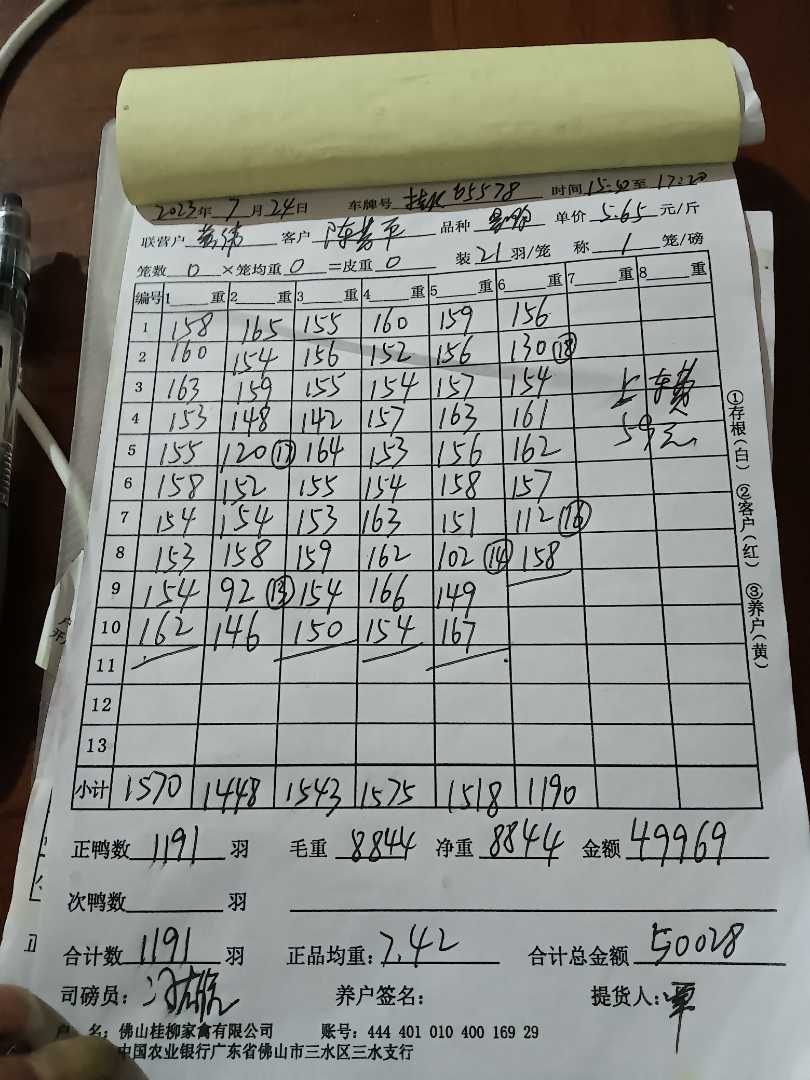 2023年 7 月 24 日 车牌号 桂K 65578 时间 15:50 至 17:20
联营户 黄伟 客户 陈善平 品种 单价 5.65 元/斤
笼数 0 ×笼均重 0 =皮重 0 装 21 羽/笼 称 1 笼/磅
编号 1 重 2 重 3 重 4 重 5 重 6 重 7 重 8 重
1 158 165 155 160 159 156
2 160 154 156 152 156 130 ⑱
3 163 159 155 154 157 154 上车费
4 153 148 142 157 163 161 59元
5 155 120 ⑰ 164 153 156 162
6 158 152 155 154 158 157
7 154 154 153 163 151 112 ⑯
8 153 158 159 162 102 ⑭ 158
9 154 92 ⑬ 154 166 149
10 162 146 150 154 167
11
12
13
小计 1570 1448 1543 1575 1518 1190
正鸭数 1191 羽 毛重 8844 净重 8844 金额 49969
次鸭数 羽
合计数 1191 羽 正品均重: 7.42 合计总金额 50028
司磅员: 养户签名: 提货人: 覃
户 名: 佛山桂柳家禽有限公司 账号: 444 401 010 400 169 29
中国农业银行广东省佛山市三水区三水支行
①存根(白) ②客户(红) ③养户(黄)